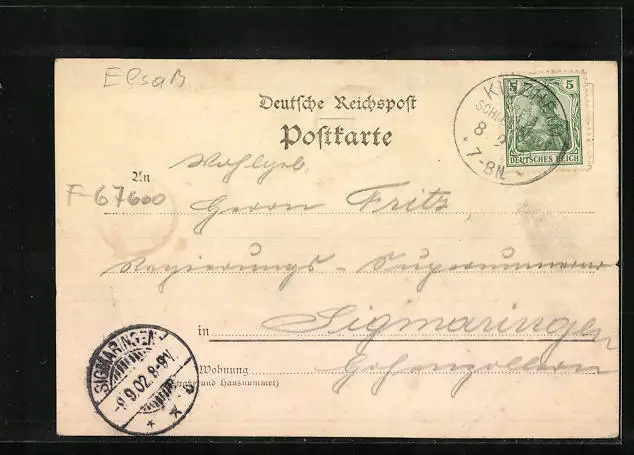 Elsaß
Deutsche Reichspost
Postkarte
5 5
DEUTSCHES REICH
KINZHEIM
8 9
7-8N.
An
Wohlgeb.
F-67600
Herrn Fritz,
Regierungs-Supernumerar
in Sigmaringen
Hohenzollern
Wohnung
(Straße und Hausnummer)
SIGMARINGEN
-9 9.02.8-9V.